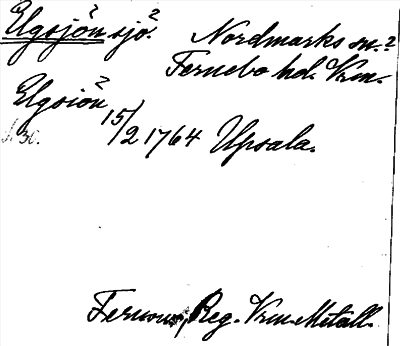 Elgsjön? sjö.? Nordmarks sn.?
Fernebo hd. Vrm.
Elgsiön?
s. 30. 15/2 1764 Upsala.
Fernow, Reg. Vrm. Metall.